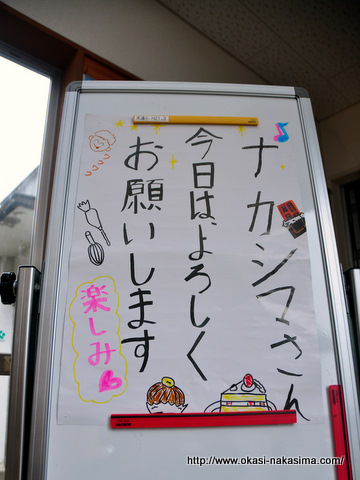 ナカシマさん
今日は、よろしく
お願いします
楽しみ
http://www.okasi-nakasima.com/